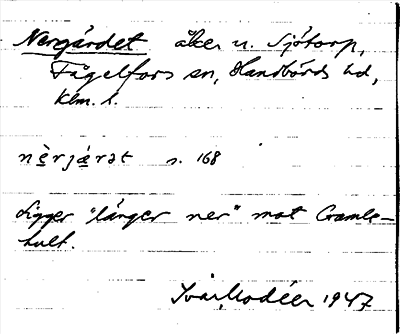 Nergärdet åker u. Sjötorp,
Fågelfors sn, Handbörds hd,
Klm. l.
nè̱rjæ̱rət s. 168
Ligger "länger ner" mot Gamle-
hult.
Ivar Modéer 1947